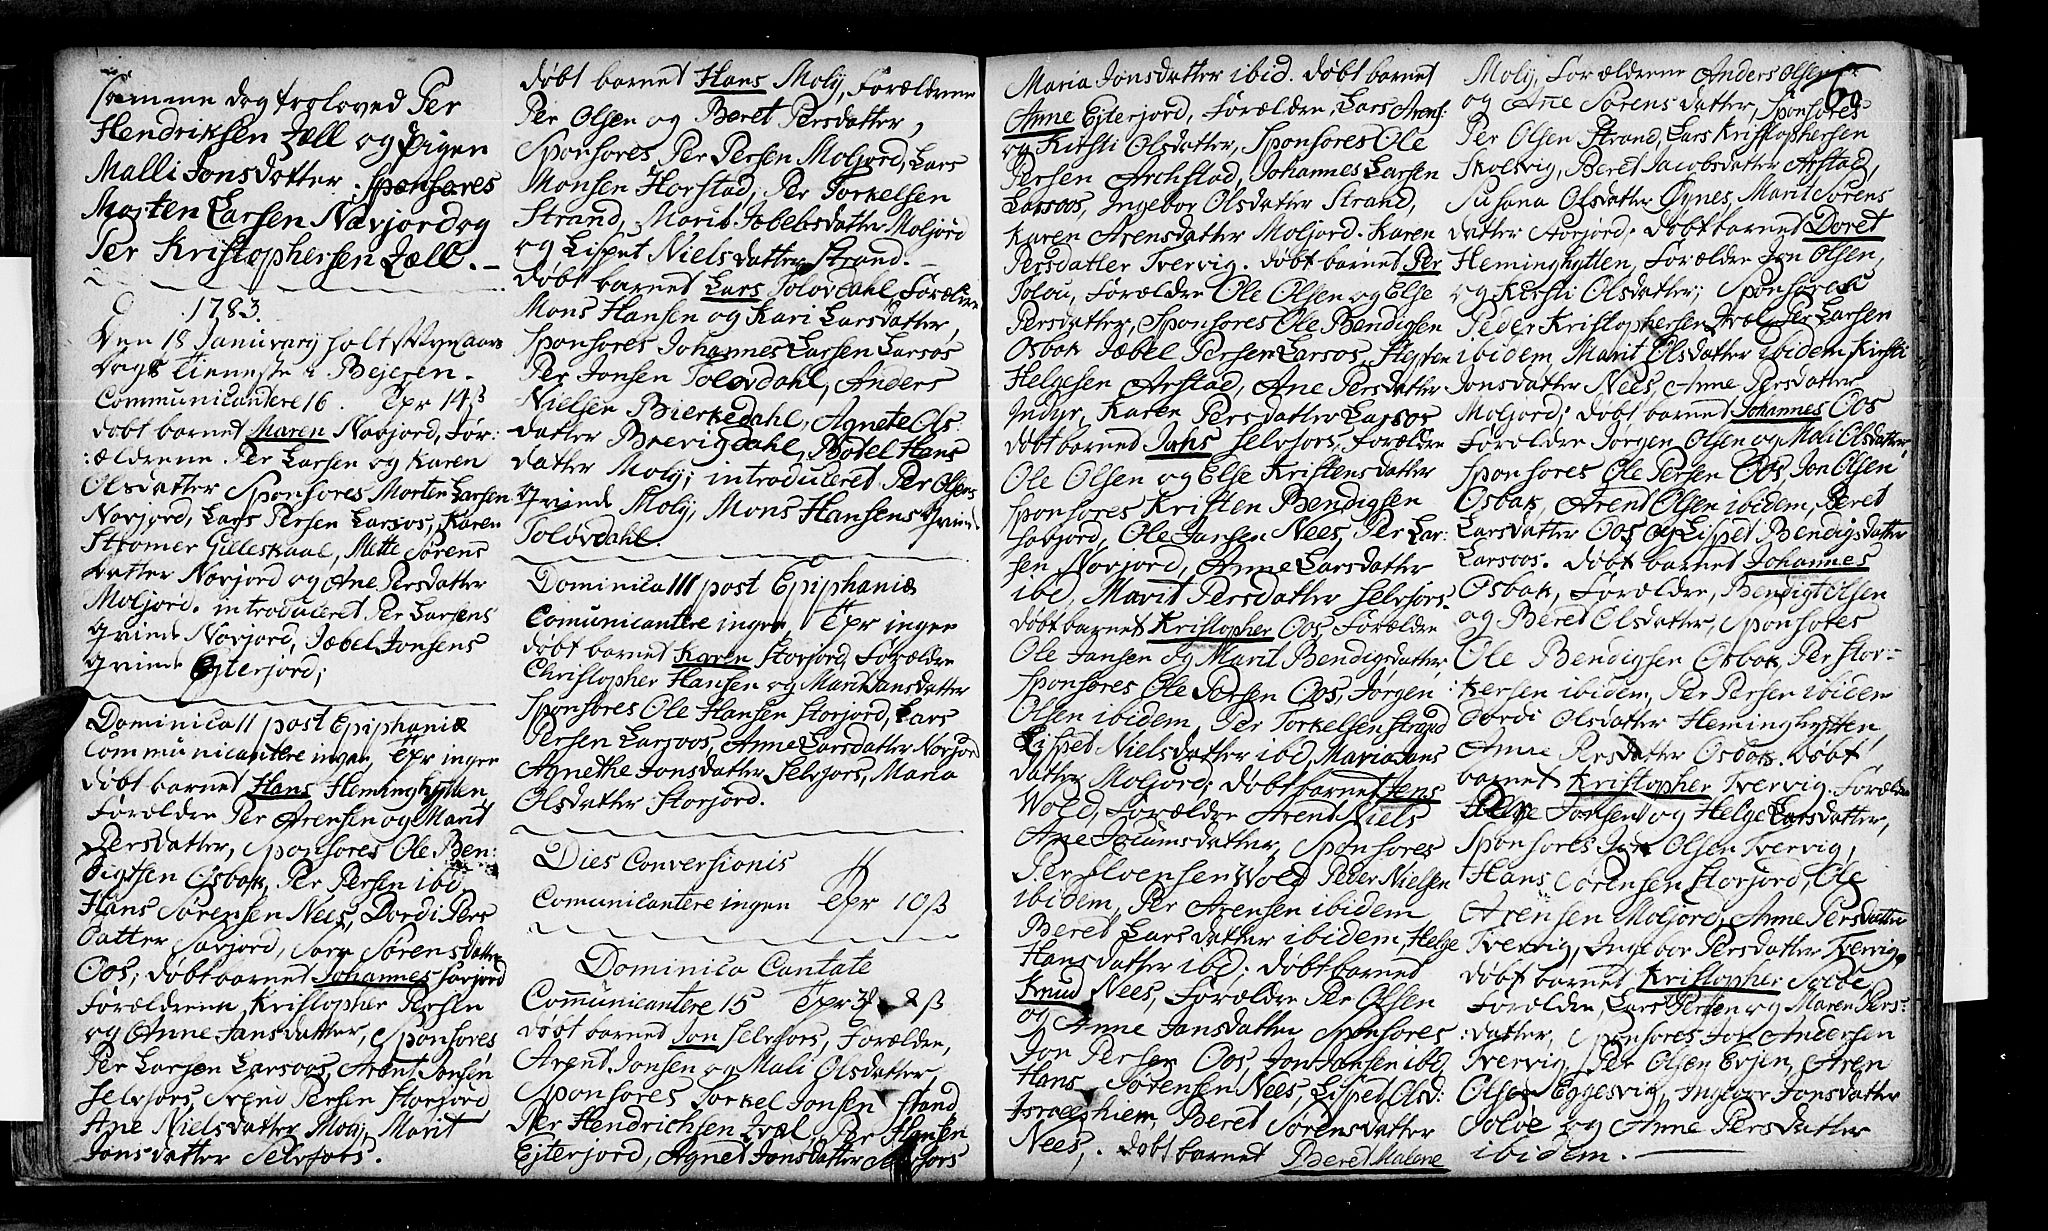 Samme dag troloved Per
Hendriksen Zæll og Pigen
Malli Jonsdatter. Sponsores
Morten Larsen Nævjord og
Per Kristophersen Zæll. –
1783.
Den 18 Januvary holt
Dags tienneste i Bejeren.
Communicantere 16. Tpr 14 ß
døbt barnet Maren Novjord, For:
:ældrene Per Larsen og Karen
Olsdatter Sponsores Morten Larsen
Novjord, Lars Persen Larsos, Karen
Stromer Gilleskaal, Mette Sørens
Datter Novjord og Ane Persdatter
Moljord. introduceret Per Larsens
qvinde Novjord, Jæbel Jonsens
qvinde Ejterjord;
Dominica II post Epiphaniæ
Communicantere ingen, Tpr ingen
døbt barnet Hans Heminghytten,
Forældre Per Arensen og Marit
Persdatter, Sponsores Ole Ben:
digtsen Osbak, Per Persen ibd,
Hans Sørensen Nees, Dordi Pers
Datter Savjord, Sara Sørensdatter
Oos; døbt barnet Johannes Savjord
Forældrene Kristopher Persen
og Anne Jansdatter, Sponsores
Per Larsen Larsoos, Arent Jonsen
Selvfors, Svend Persen Storjord
Ane Nielsdatter Moly, Marit
Jonsdatter Selvfors.
døbt barnet Hans Moly, Forældrene
Per Olsen og Beret Persdatter,
Sponsores Per Persen Moljord, Lars
Monsen Horstad, Per Torkelsen
Strand, Marit Jobebsdatter Moljord
og Lispet Nielsdatter Strand. –
døbt barnet Lars Tolovdahl, Forældre
Mons Hansen og Kari Larsdatter,
Sponsores Johannes Larsen Larsos
Per Jonsen Tolovdahl, Anders
Nielsen Bierkedahl, Agnete Ols
datter Brevigdahl, Bodel Hans
datter Moly; introduceret Per Olsens
qvinde Moly, Mons Hansens qvinde
Toløvdahl.
Dominica III post Epiphaniæ
Comunicantere ingen Tpr ingen
døbt barnet Karen Storjord, Forældre
Christopher Hansen og Marit Jansdatter
Sponsores Ole Hansen Storjord, Lars
Persen Larsoos, Anne Larsdatter Novjord
Agnethe Jonsdatter Selvfors, Maria
Olsdatter Storjord.
Dies Conversionis
Comunicantere ingen Tpr 10 ß
Dominica Cantate
Comunicantere 15 Tpr 2 ß
døbt barnet Jon Selvfors, Forældre,
Arent Jonsen og Mali Olsdatter
Sponsores Torkel Jonsen Stand
Per Hendrichsen Zvæl, Per Hansen
Ejterjord, Agnet Jonsdatter Selvfors
Maria Jonsdatter ibid. døbt barnet
Anne Ejterjord, Forældre, Lars Arens:
og Kirsti Olsdatter, Sponsores Ole
Persen Archstad, Johannes Larsen
Larsoos, Ingebor Olsdatter Strand,
Karen Arensdatter Moljord. Karen
Persdatter Tvervig. døbt barnet Per
Tolou, Forældre Ole Olsen og Else
Persdatter, Sponsores Ole Bendigsen
Osbak Jæbel Persen Larsos, Steffen
Helgesen Arstad, Ane Persdatter
Indyr, Karen Persdatter Larsos
døbt barnet Jons Selvfors, Forældre
Ole Olsen og Else Kristensdatter
Sponsores Kristen Bendigsen
Savjord, Ole Jansen Nees, Per Lar:
sen Novjord, Anne Larsdatter
ibd, Marit Persdatter Selvfors.
døbt barnet Kristopher Oos, Forældre
Ole Jansen og Marit Bendigsdatter,
Sponsores Ole Persen Oos, Jørgen
Olsen ibidem, Per Torkelsen Strand
Lispet Nielsdatter ibd, Maria Jans
datter Moljord; døbt barnet Jens
Wold, Forældre Arent Niels
Ane Joramsdatter, Sponsores
Per Evensen Wold Peder Nielsen
ibidem, Per Arensen ibidem
Beret Larsdatter ibidem, Helge
Hansdatter ibd; døbt barnet
Knud Nees, Forældre Per Olsen
og Anne Jansdatter Sponsores
Jon Persen Oos, Jon Hansen ibd,
Hans Sørensen Nees, Lispet Olsd:
Israelshiem, Beret Sørensdatter
Nees,. døbt barnet Beret Malene
60
Moly, Forældrene Anders Olsen
og Ane Sørensdatter, Sponsores
Per Olsen Strand, Lars Kristophersen
Skolvig, Beret Jacobsdatter Arstad,
Susana Olsdatter Øynes, Marit Sørens
datter Storjord. døbt barnet Doret
Heminghytten, Forældre Jon Olsen,
og Kirsti Olsdatter; Sponsores
Peder Kristophersen Per Larsen
ibidem, Marit Olsdatter ibidem Kirsti
Jonsdatter Nees, Anne Persdatter
Moljord. døbt barnet Johannes Oos
Forældre Jørgen Olsen og Mali Olsdatter,
Sponsores Ole Persen Oos, Jon Olsen
Osbak, Arent Olsen ibidem, Beret
Larsdatter Oos og Lispet Bendigsdatter
Larsoos. døbt barnet Johannes
Osbak, Forældre, Bendigt Olsen
og Beret Olsdatter, Sponsores
Ole Bendigsen Osbak, Per Stor-
kersen ibidem, Per Persen ibidem
Dordi Olsdatter Heminghytten,
Anne Persdatter Osbak. Døbt
barnet Kristopher Tvervig. Forældre
Jonsen og Helge Larsdatter,
Sponsores Jon Olsen Tvervig,
Hans Sørensen Storjord, Ole
Arensen Moljord, Anne Persdatter
Tvervig, Ingebor Persdatter Tvervig.
døbt barnet Kristopher Soløe
Forældre, Lars Persen og Maren Pers:
:datter, Sponsores Jon Andersen
Tvervig, Per Olsen Evjen, Aren
Olsen Eggesvig, Ingebor Jonsdatter
Soløe og Anne Persdatter
ibidem.